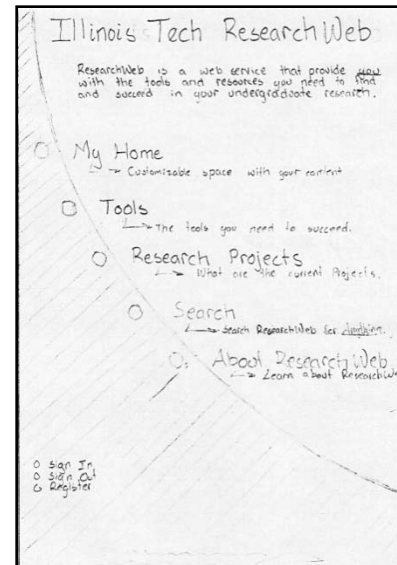 Illinois Tech ResearchWeb
ResearchWeb is a web service that provide you
with the tools and resources you need to find
and succeed in your undergraduate research.
My Home
Customizable space with your content
Tools
The tools you need to succeed.
Research Projects
What are the current Projects.
Search
Search ResearchWeb for Anything.
About ResearchWeb
Learn about ResearchWe
Sign In
Sign Out
Register